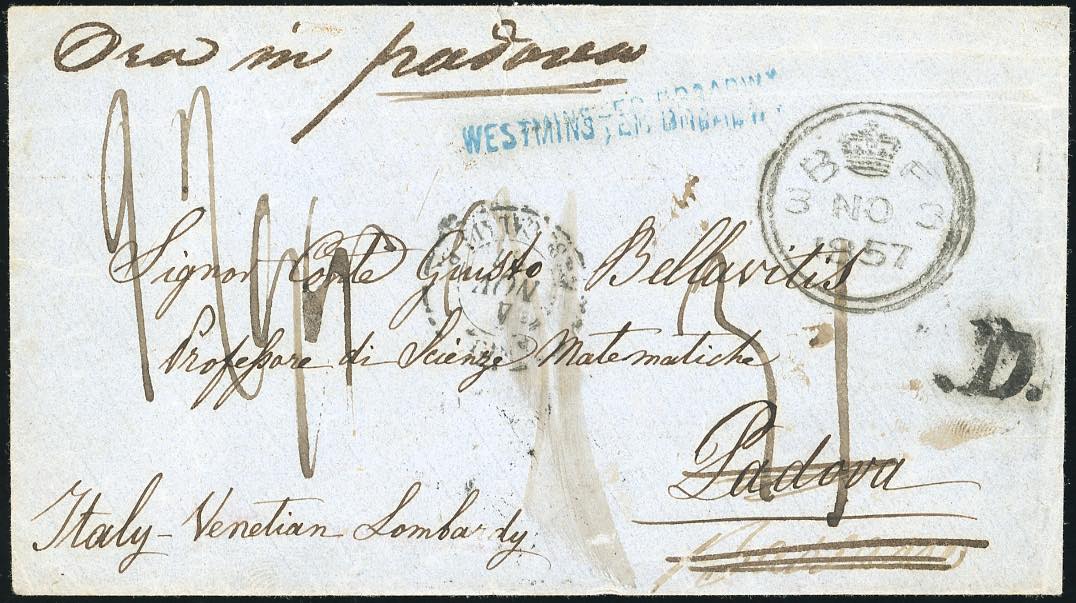 Ora in padova
WESTMINSTER BROADWY
B F
3 NO 3
1857
Signor Conte Giusto Bellavitis
Professore di Scienze Matematiche
.D.
Padova
Italy - Venetian Lombardy.